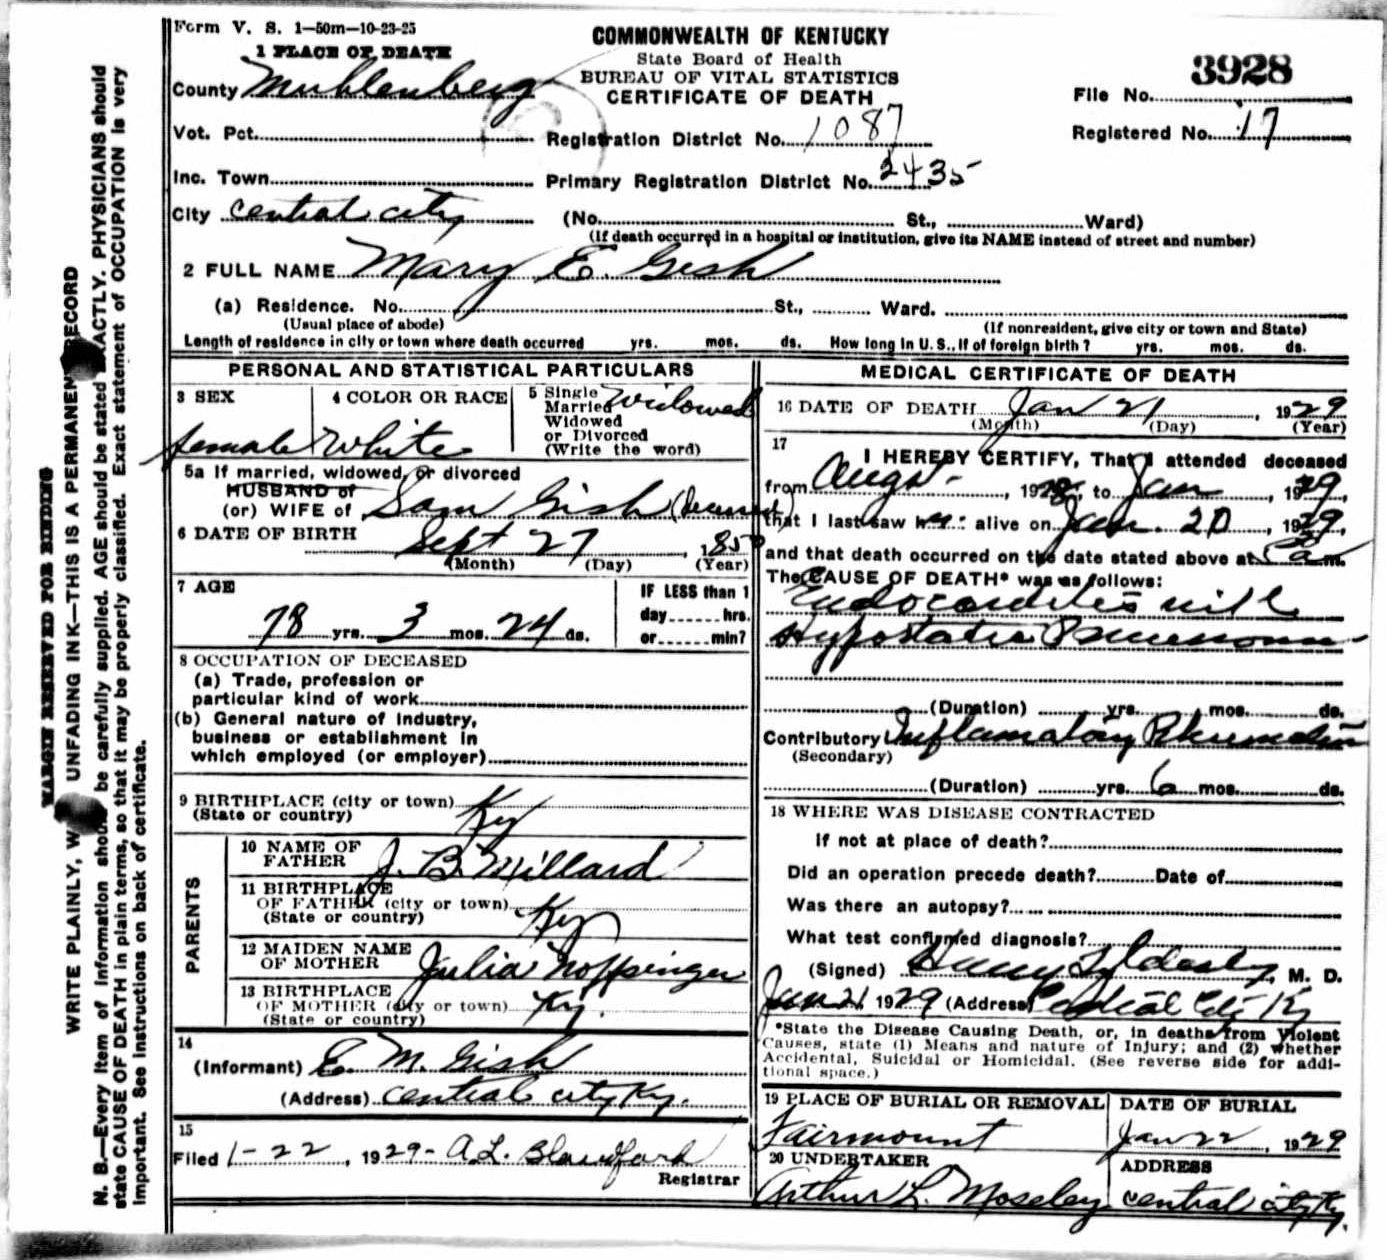 Form V. S. 1—50m—10-23-25
COMMONWEALTH OF KENTUCKY
State Board of Health
BUREAU OF VITAL STATISTICS
CERTIFICATE OF DEATH
3928
File No.
Registered No. 17
1 PLACE OF DEATH
County Muhlenberg
Vot. Pct.
Registration District No. 1087
Inc. Town
Primary Registration District No. 2435
City Central City (No. St., Ward)
(If death occurred in a hospital or institution, give its NAME instead of street and number)
2 FULL NAME Mary E. Gish
(a) Residence. No. St., Ward.
(Usual place of abode) (If nonresident, give city or town and State)
Length of residence in city or town where death occurred yrs. mos. ds. How long in U. S., if of foreign birth? yrs. mos. ds.
PERSONAL AND STATISTICAL PARTICULARS
3 SEX
female
4 COLOR OR RACE
White
5 Single
Married
Widowed
or Divorced
(Write the word)
Widowed
5a If married, widowed, or divorced
HUSBAND of
(or) WIFE of Sam Gish (Deceased)
6 DATE OF BIRTH Sept 27, 1850
(Month) (Day) (Year)
7 AGE
78 yrs. 3 mos. 24 ds.
IF LESS than 1
day hrs.
or min?
8 OCCUPATION OF DECEASED
(a) Trade, profession or
particular kind of work
(b) General nature of industry,
business or establishment in
which employed (or employer)
9 BIRTHPLACE (city or town)
(State or country) Ky
PARENTS
10 NAME OF
FATHER J. B. Millard
11 BIRTHPLACE
OF FATHER (city or town)
(State or country) Ky
12 MAIDEN NAME
OF MOTHER Julia Noffsinger
13 BIRTHPLACE
OF MOTHER (city or town)
(State or country) Ky.
14
(Informant) E. M. Gish
(Address) Central City Ky.
15
Filed 1-22, 1929- A L. Blandford
Registrar
MEDICAL CERTIFICATE OF DEATH
16 DATE OF DEATH Jan 21, 1929
(Month) (Day) (Year)
17
I HEREBY CERTIFY, That I attended deceased
from Augst-, 1928, to Jan, 1929,
that I last saw her alive on Jan. 20, 1929,
and that death occurred on the date stated above at m.
The CAUSE OF DEATH* was as follows:
Endocarditis with
Hypostatic Pneumonia
(Duration) yrs. mos. ds.
Contributory Inflamatory Rheumatism
(Secondary)
(Duration) yrs. 6 mos. ds.
18 WHERE WAS DISEASE CONTRACTED
If not at place of death?
Did an operation precede death? Date of
Was there an autopsy?
What test confirmed diagnosis?
(Signed) , M. D.
Jan 21 1929 (Address) Central City Ky
*State the Disease Causing Death, or, in deaths from Violent
Causes, state (1) Means and nature of Injury; and (2) whether
Accidental, Suicidal or Homicidal. (See reverse side for addi-
tional space.)
19 PLACE OF BURIAL OR REMOVAL
Fairmount
DATE OF BURIAL
Jan 22, 1929
20 UNDERTAKER
Arthur L. Moseley
ADDRESS
Central City Ky.
MARGIN RESERVED FOR BINDING
WRITE PLAINLY, W UNFADING INK—THIS IS A PERMANENT RECORD
N. B.—Every item of information should be carefully supplied. AGE should be stated EXACTLY. PHYSICIANS should
state CAUSE OF DEATH in plain terms, so that it may be properly classified. Exact statement of OCCUPATION is very
important. See instructions on back of certificate.